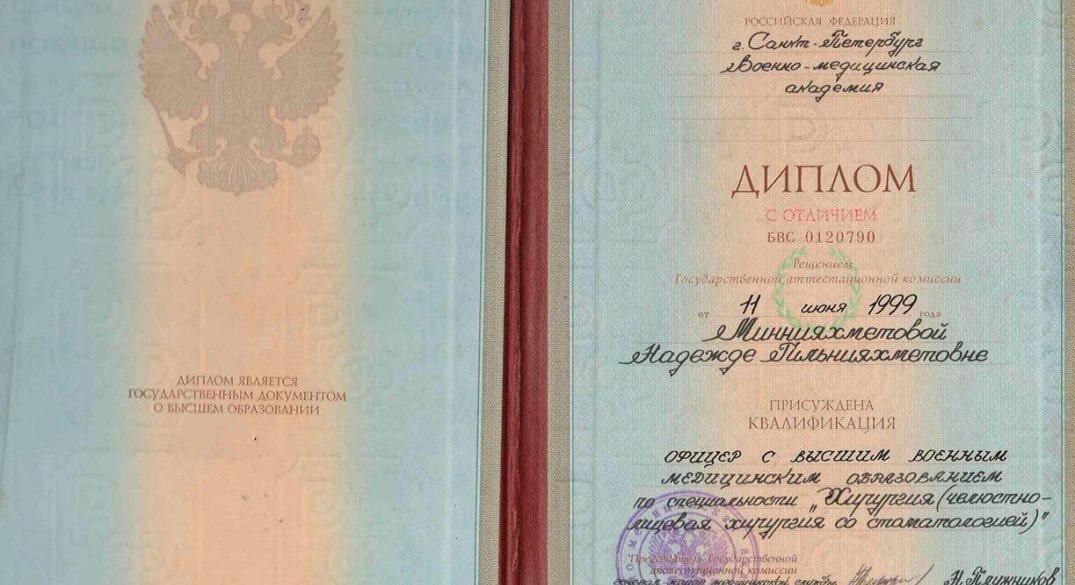 ДИПЛОМ ЯВЛЯЕТСЯ
ГОСУДАРСТВЕННЫМ ДОКУМЕНТОМ
О ВЫСШЕМ ОБРАЗОВАНИИ
РОССИЙСКАЯ ФЕДЕРАЦИЯ
г. Санкт-Петербург
Военно-медицинская
академия
ДИПЛОМ
С ОТЛИЧИЕМ
БВС 0120790
Решением
Государственной аттестационной комиссии
от 11 июня 1999 года
Миннияхметовой
Надежде Гильнияхметовне
ПРИСУЖДЕНА
КВАЛИФИКАЦИЯ
ОФИЦЕР С ВЫСШИМ ВОЕННЫМ
МЕДИЦИНСКИМ ОБРАЗОВАНИЕМ
по специальности „Хирургия (челюстно-
лицевая хирургия со стоматологией)"
Председатель Государственной
аттестационной комиссии
генерал-майор медицинской службы